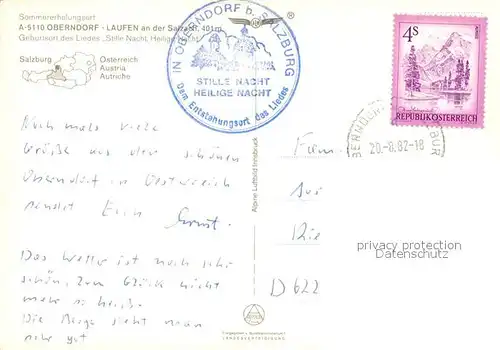 Sommererholungsort
A-5110 OBERNDORF - LAUFEN an der Salzach, 401m
Geburtsort des Liedes „Stille Nacht, Heilige Nacht"
Salzburg Österreich
Austria
Autriche
IN OBERNDORF b. SALZBURG
STILLE NACHT
HEILIGE NACHT
Dem Entstehungsort des Liedes
4S
REPUBLIK ÖSTERREICH
20.-8.82-18
Noch mals viele
Grüße aus dem schönen
Oberndorf in Oesterreich
sendet Euch
Ernst.
Das Wetter ist noch sehr
schön, zum Glück nicht
mehr so heiß.
Die Berge sieht man
sehr gut
Alpine Luftbild Innsbruck
Fam.
D 622
privacy protection
Datenschutz